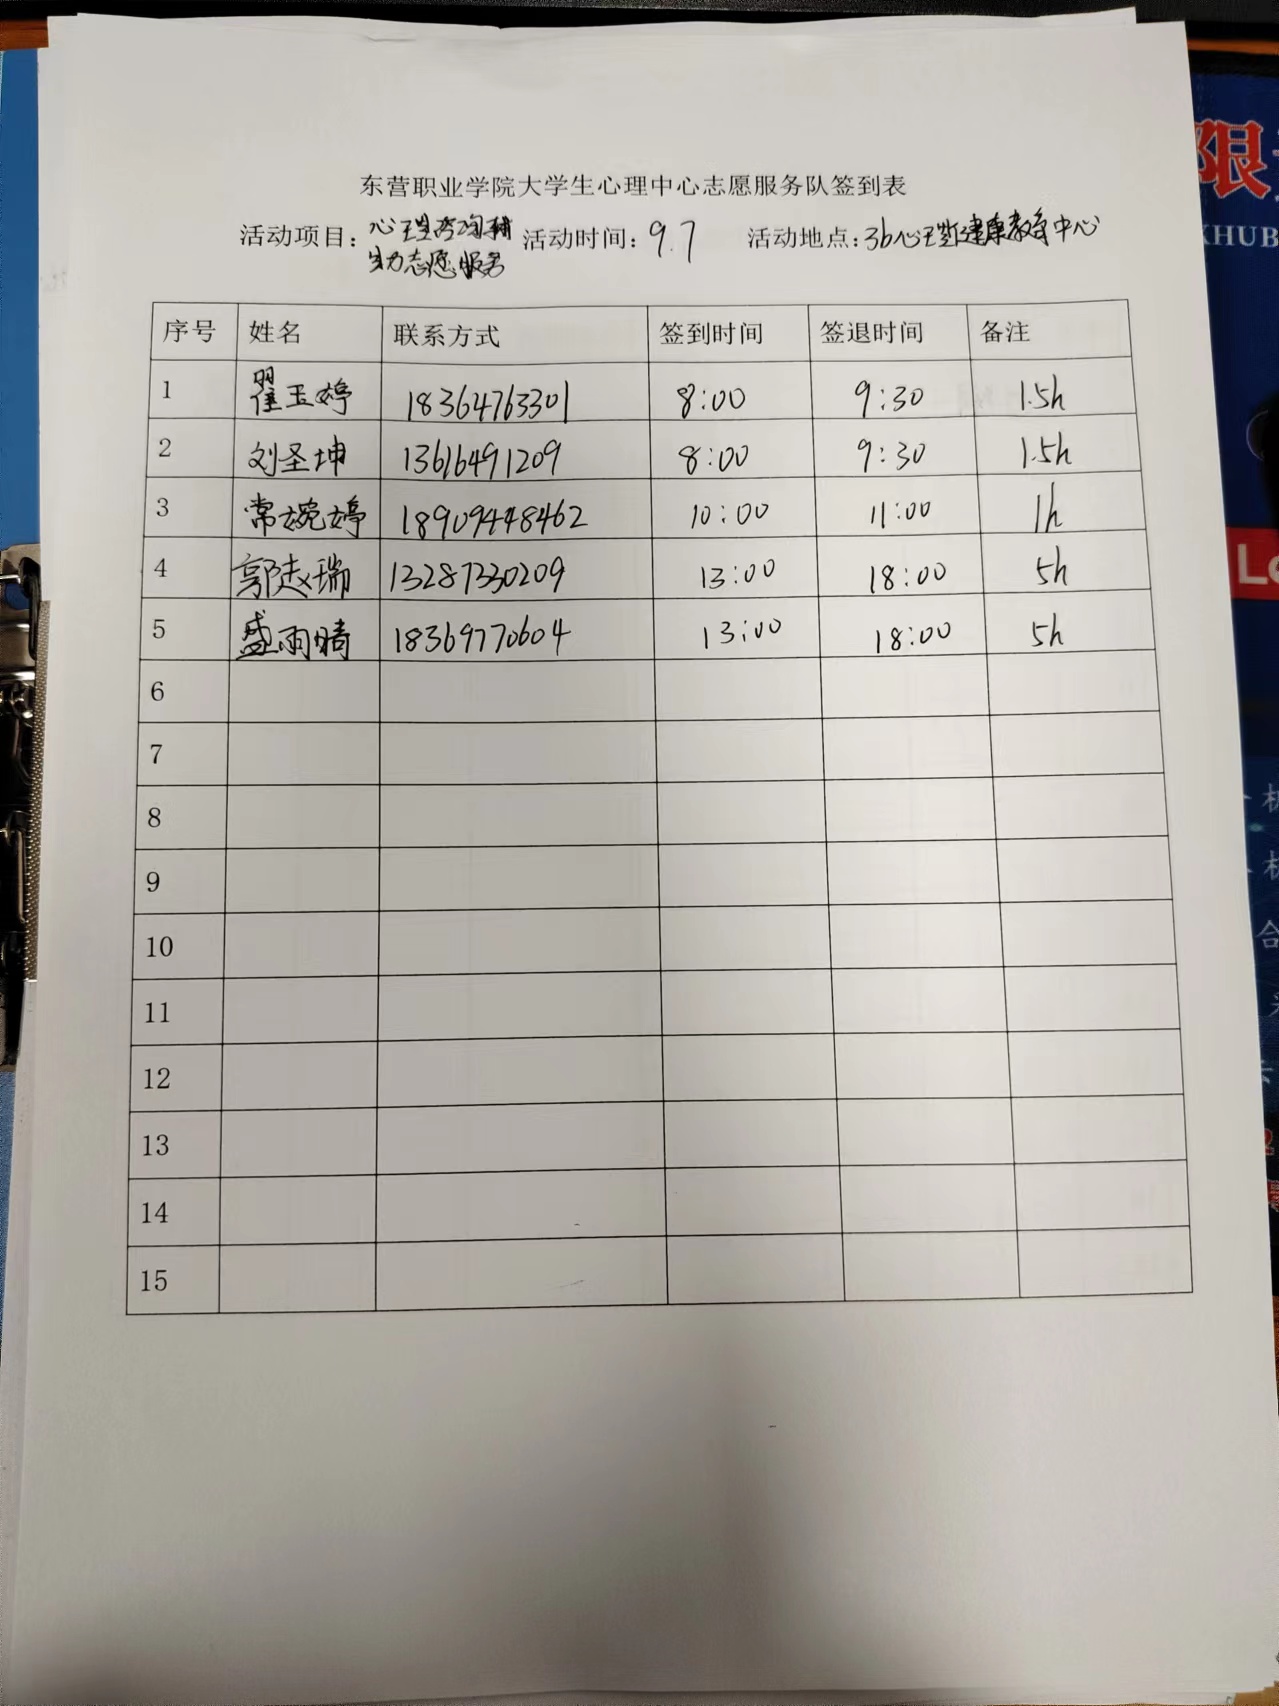 东营职业学院大学生心理中心志愿服务队签到表
活动项目：心理咨询辅助志愿服务 活动时间：9.7 活动地点：3b心理健康教育中心
序号 姓名 联系方式 签到时间 签退时间 备注
1 翟玉婷 18364763301 8:00 9:30 1.5h
2 刘圣坤 13616491209 8:00 9:30 1.5h
3 常婉婷 18909448462 10:00 11:00 1h
4 郭赵瑞 13287330209 13:00 18:00 5h
5 盛雨晴 18369770604 13:00 18:00 5h
6
7
8
9
10
11
12
13
14
15
限
KHUB
合